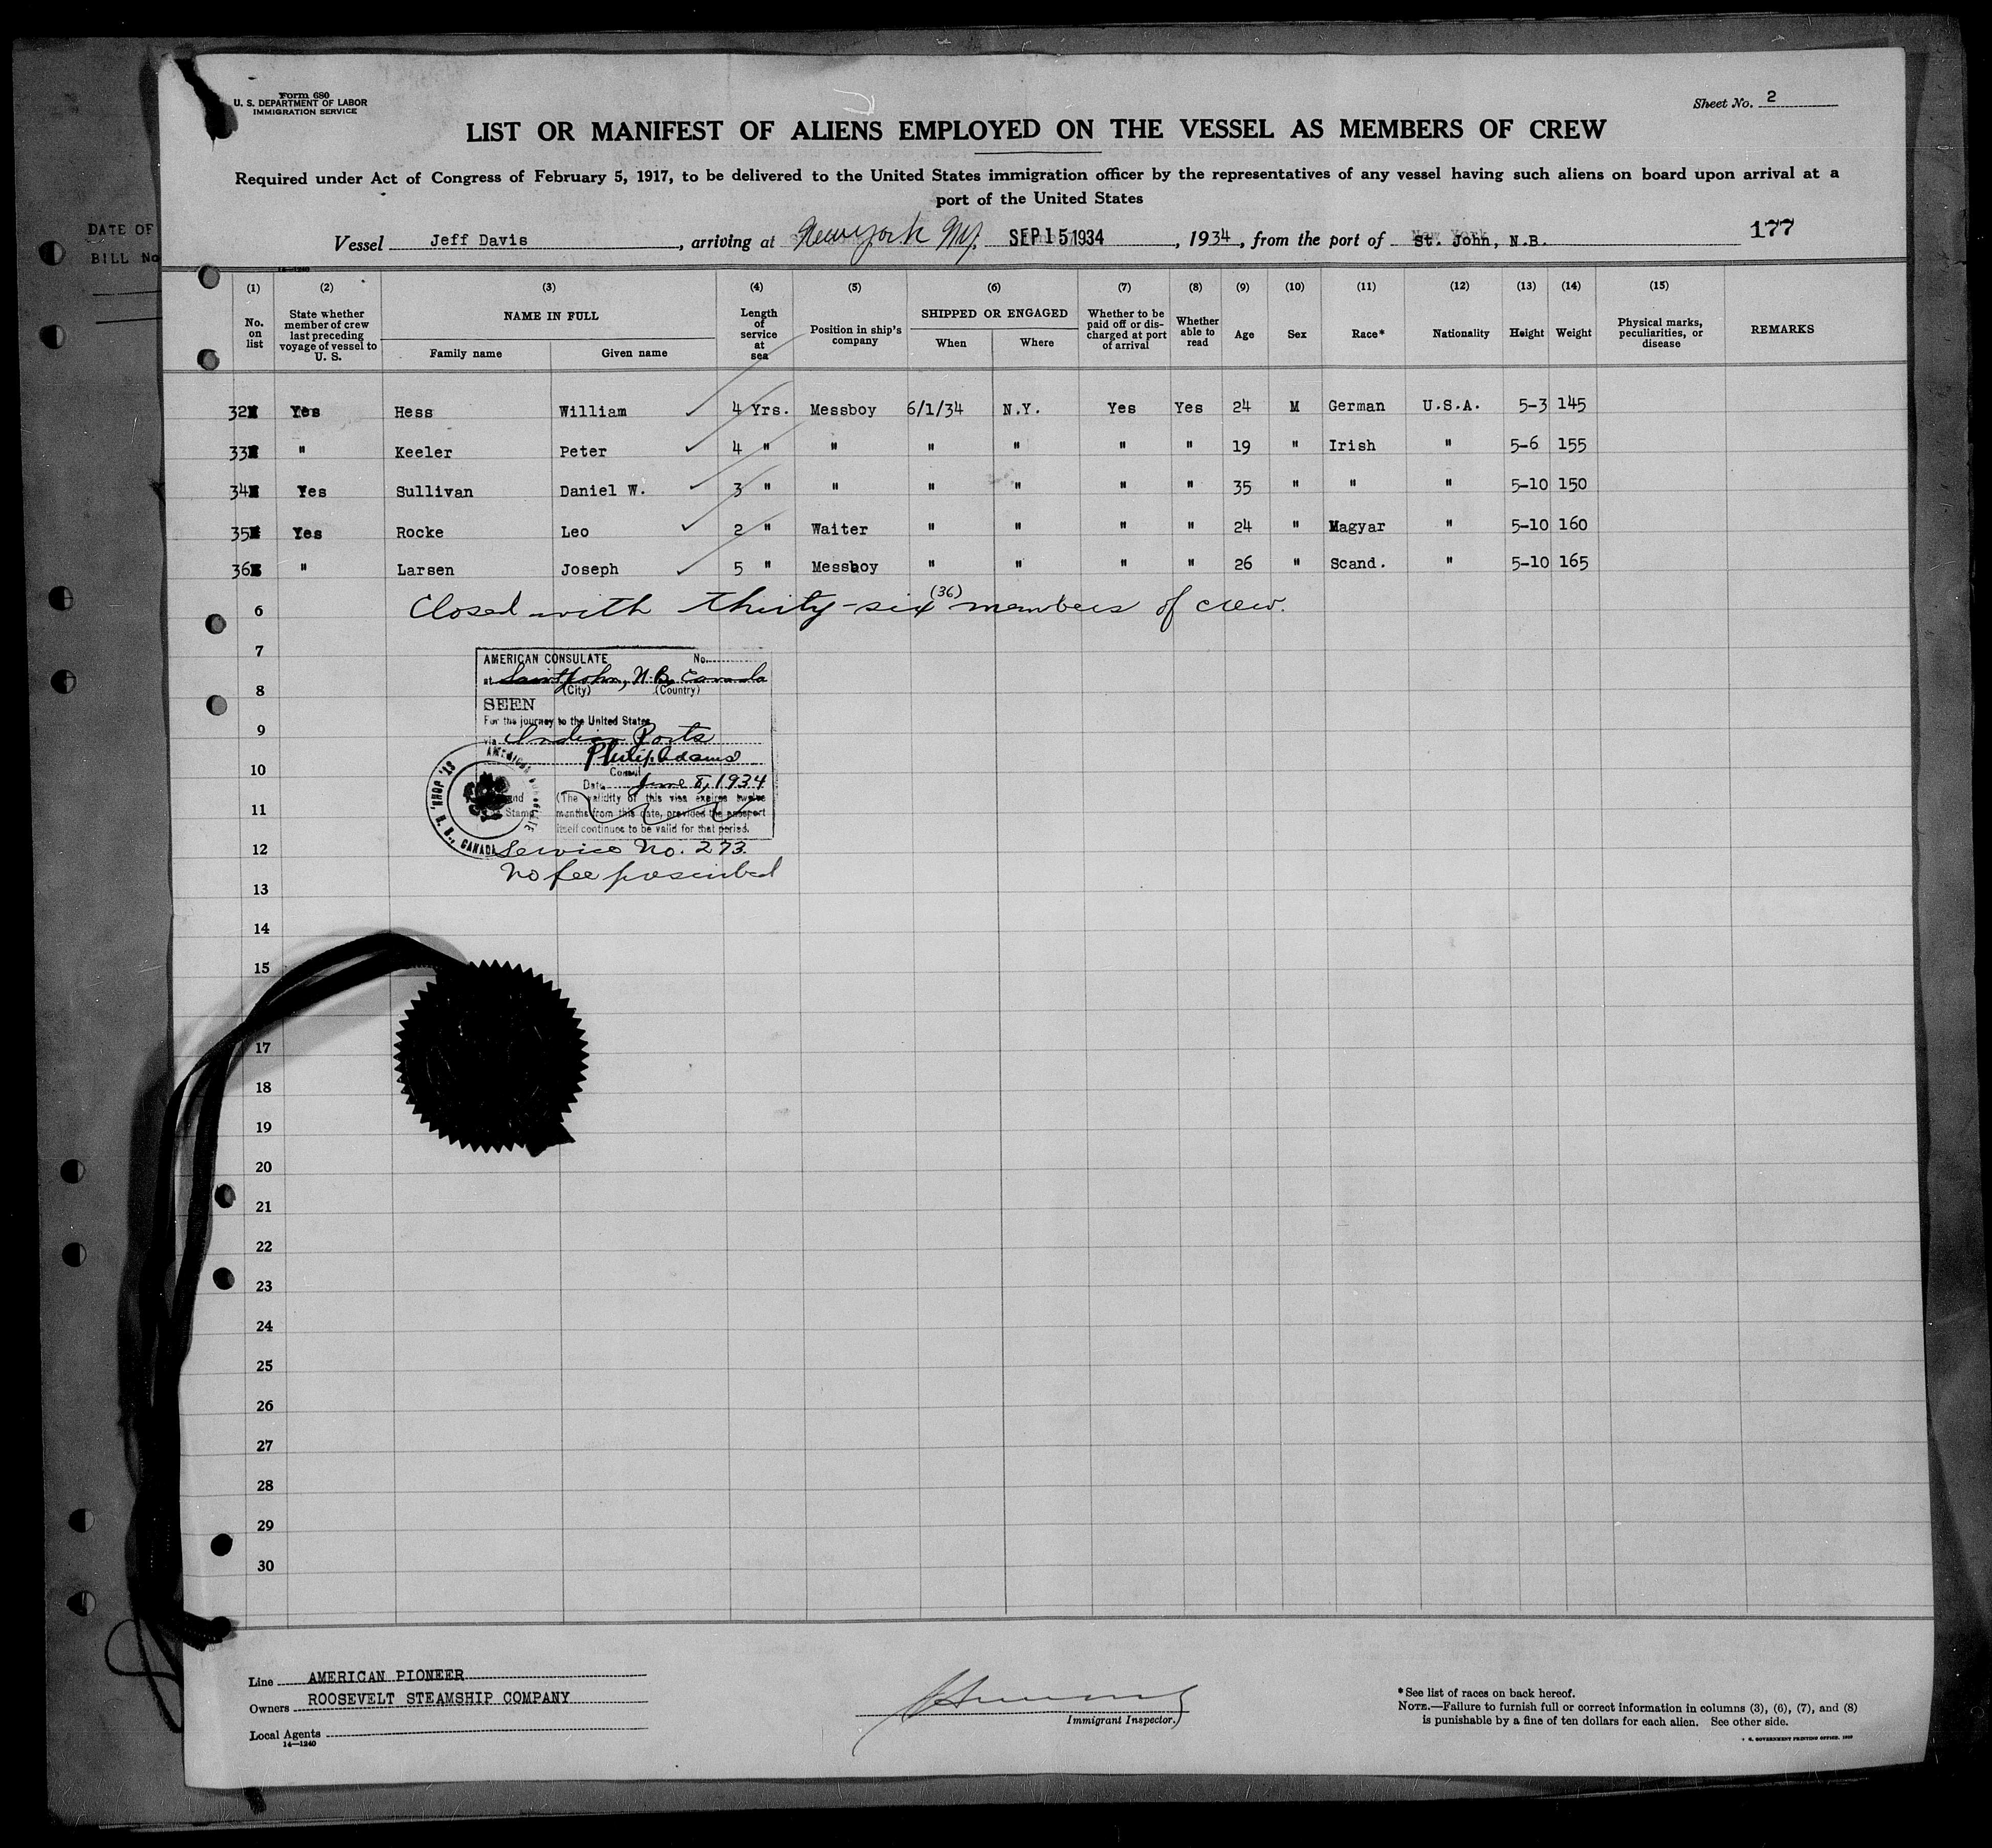 DATE OF
BILL No
Form 680
U. S. DEPARTMENT OF LABOR
IMMIGRATION SERVICE
Sheet No. 2
LIST OR MANIFEST OF ALIENS EMPLOYED ON THE VESSEL AS MEMBERS OF CREW
Required under Act of Congress of February 5, 1917, to be delivered to the United States immigration officer by the representatives of any vessel having such aliens on board upon arrival at a
port of the United States
Vessel Jeff Davis, arriving at New York NY. SEP 15 1934, 1934, from the port of St. John, N.B. 177
14—1240
(1) (2) (3) (4) (5) (6) (7) (8) (9) (10) (11) (12) (13) (14) (15)
No. on list
State whether member of crew last preceding voyage of vessel to U. S.
NAME IN FULL
Family name
Given name
Length of service at sea
Position in ship's company
SHIPPED OR ENGAGED
When
Where
Whether to be paid off or discharged at port of arrival
Whether able to read
Age
Sex
Race*
Nationality
Height
Weight
Physical marks, peculiarities, or disease
REMARKS
32 Yes Hess William ✓ 4 Yrs. Messboy 6/1/34 N.Y. Yes Yes 24 M German U.S.A. 5-3 145
33 " Keeler Peter ✓ 4 " " " " " " 19 " Irish " 5-6 155
34 Yes Sullivan Daniel W. ✓ 3 " " " " " " 35 " " " 5-10 150
35 Yes Rocke Leo ✓ 2 " Waiter " " " " 24 " Magyar " 5-10 160
36 " Larsen Joseph ✓ 5 " Messboy " " " " 26 " Scand. " 5-10 165
6 Closed with thirty-six (36) members of crew.
7
AMERICAN CONSULATE No.
at Saint John, N.B. Canada
8
(City) (Country)
SEEN
For the journey to the United States
9
via Indian Ports
Philip Adams
10
Consul
Date June 8, 1934
(The validity of this visa expires twelve
11
Stamp months from this date, provided the passport
itself continues to be valid for that period.
ST. JOHN, N. B., CANADA
12
Service No. 273.
No fee prescribed
13
14
15
17
18
19
20
21
22
23
24
25
26
27
28
29
30
Line AMERICAN PIONEER
Owners ROOSEVELT STEAMSHIP COMPANY
Local Agents
14—1240
Immigrant Inspector.
*See list of races on back hereof.
NOTE.—Failure to furnish full or correct information in columns (3), (6), (7), and (8)
is punishable by a fine of ten dollars for each alien. See other side.
GOVERNMENT PRINTING OFFICE